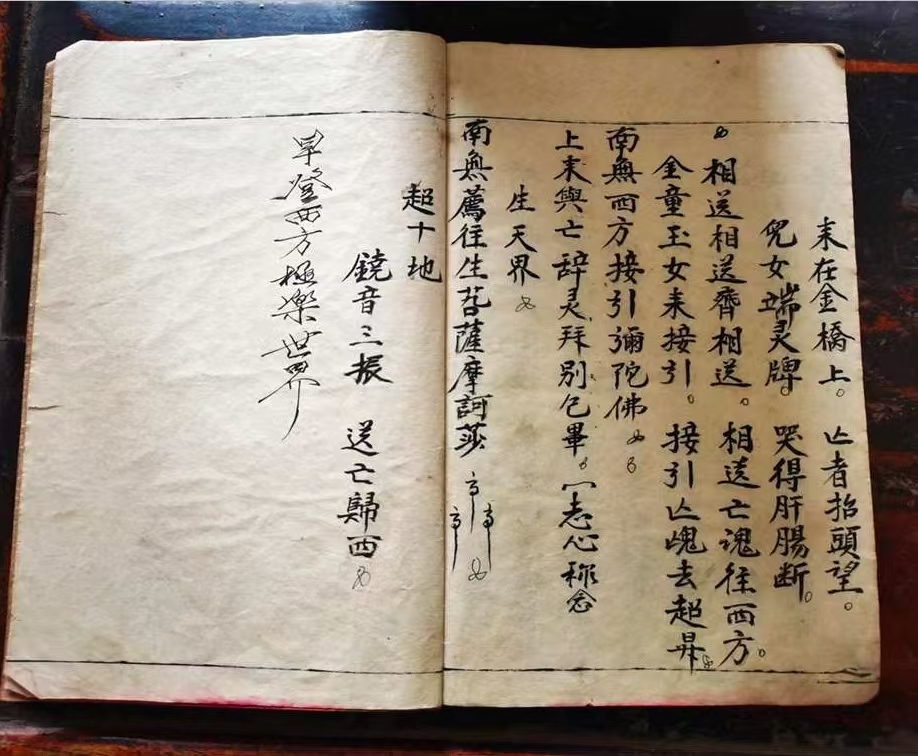 来在金橋上。亾者抬頭望。
兒女端灵牌。哭得肝腸断。
相送相送齊相送。相送亡魂徃西方。
金童玉女来接引。接引亾魂去超昇
南無西方接引彌陀佛
上来與亡辞灵拜别已畢。志心称念
生天界
南無薦往生菩薩摩訶莎
超十地
鐃音三振 送亡歸西
早登西方極樂世界